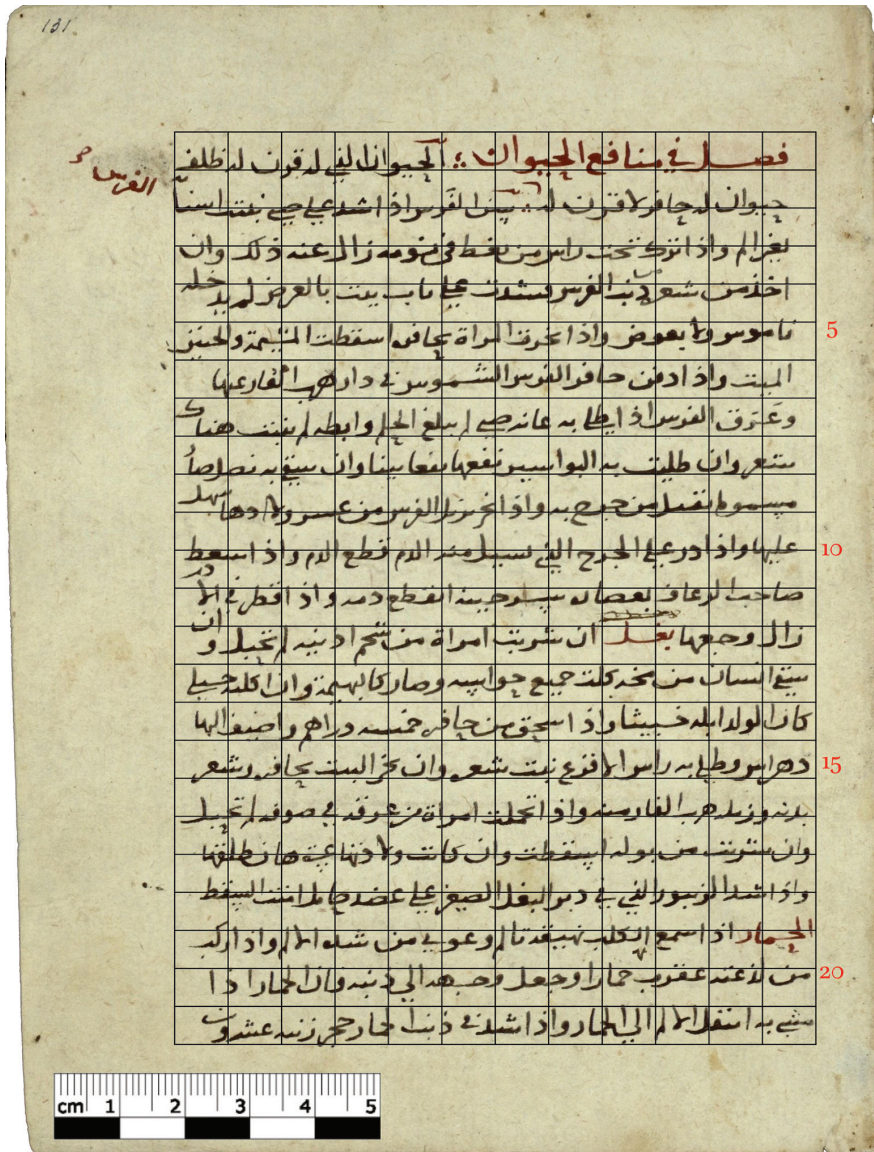 131
فصل في منافع الحيوان ؛ الحيوان الذي له قرون له ظلف
الفرس
حيوان له حافر لا قرون له سن الفرس اذا اشد علي صبي نبتت اسنا
بغير الم واذا اترك تحت راس من يغط في نومه زال عنه ذلك وان
اخذ من شعر ذنب الفرس وشدت علي باب بيت بالعرض لم يدخله
5
ناموس ولا بعوض واذا بخرت المراة بحافره اسقطت المشيمة والجنين
الميت واذا دفن حافر الفرس الشموس في دار هرب الفار عنها
وعرق الفرس اذا يطلا به عانة صبي لم يبلغ الحلم وابطه لم ينبت هناك
شعر وان طليت به البواسير نفعها نفعا بينا وان سقي به نصل صا
مسموما يقتل من جرح به واذا بخر بزبل الفرس من عسر ولادها سهل
10
عليها واذا ذر علي الجرح الذي يسيل منه الدم قطع الدم واذا اسعط
صاحب الرعاف بعصارة حينه انقطع دمه واذا اقطر في الاذن
زال وجعها بغل ان شربت امراة من شحم اذنيه لم تحبل وان
سقي انسان من مخه بكلت جميع حواسه وصار كالبهيمة وان اكلته حبلي
كان الولد ابله خبيثا واذا اسحق من حافره خمسة دراهم واضيف اليها
15
دهن اس وطلي به راس الاقرع نبت شعره وان بخر البيت بحافره وشعر
بدنه وزبله هرب الفار منه واذا تحملت امراة من عرقه في صوفه لم تحبل
وان شربت من بوله اسقطت وان كانت ولادتها عسرة هان طلقها
واذا اشد الزنبور الذي في دبر البغل الصغير علي عضد حامل امنت السقط
الحمار اذا سمع الكلب نهيقه تالم وعوي من شدة الالم واذا ركب
20
من لذغته عقرب حمارا وجعل وجهه الي ذنبه فان الحمار اذا
مشي به انتقل الالم الي الحمار واذا اشد في ذنب الحمار حجر زنته عشرون
cm 1 2 3 4 5